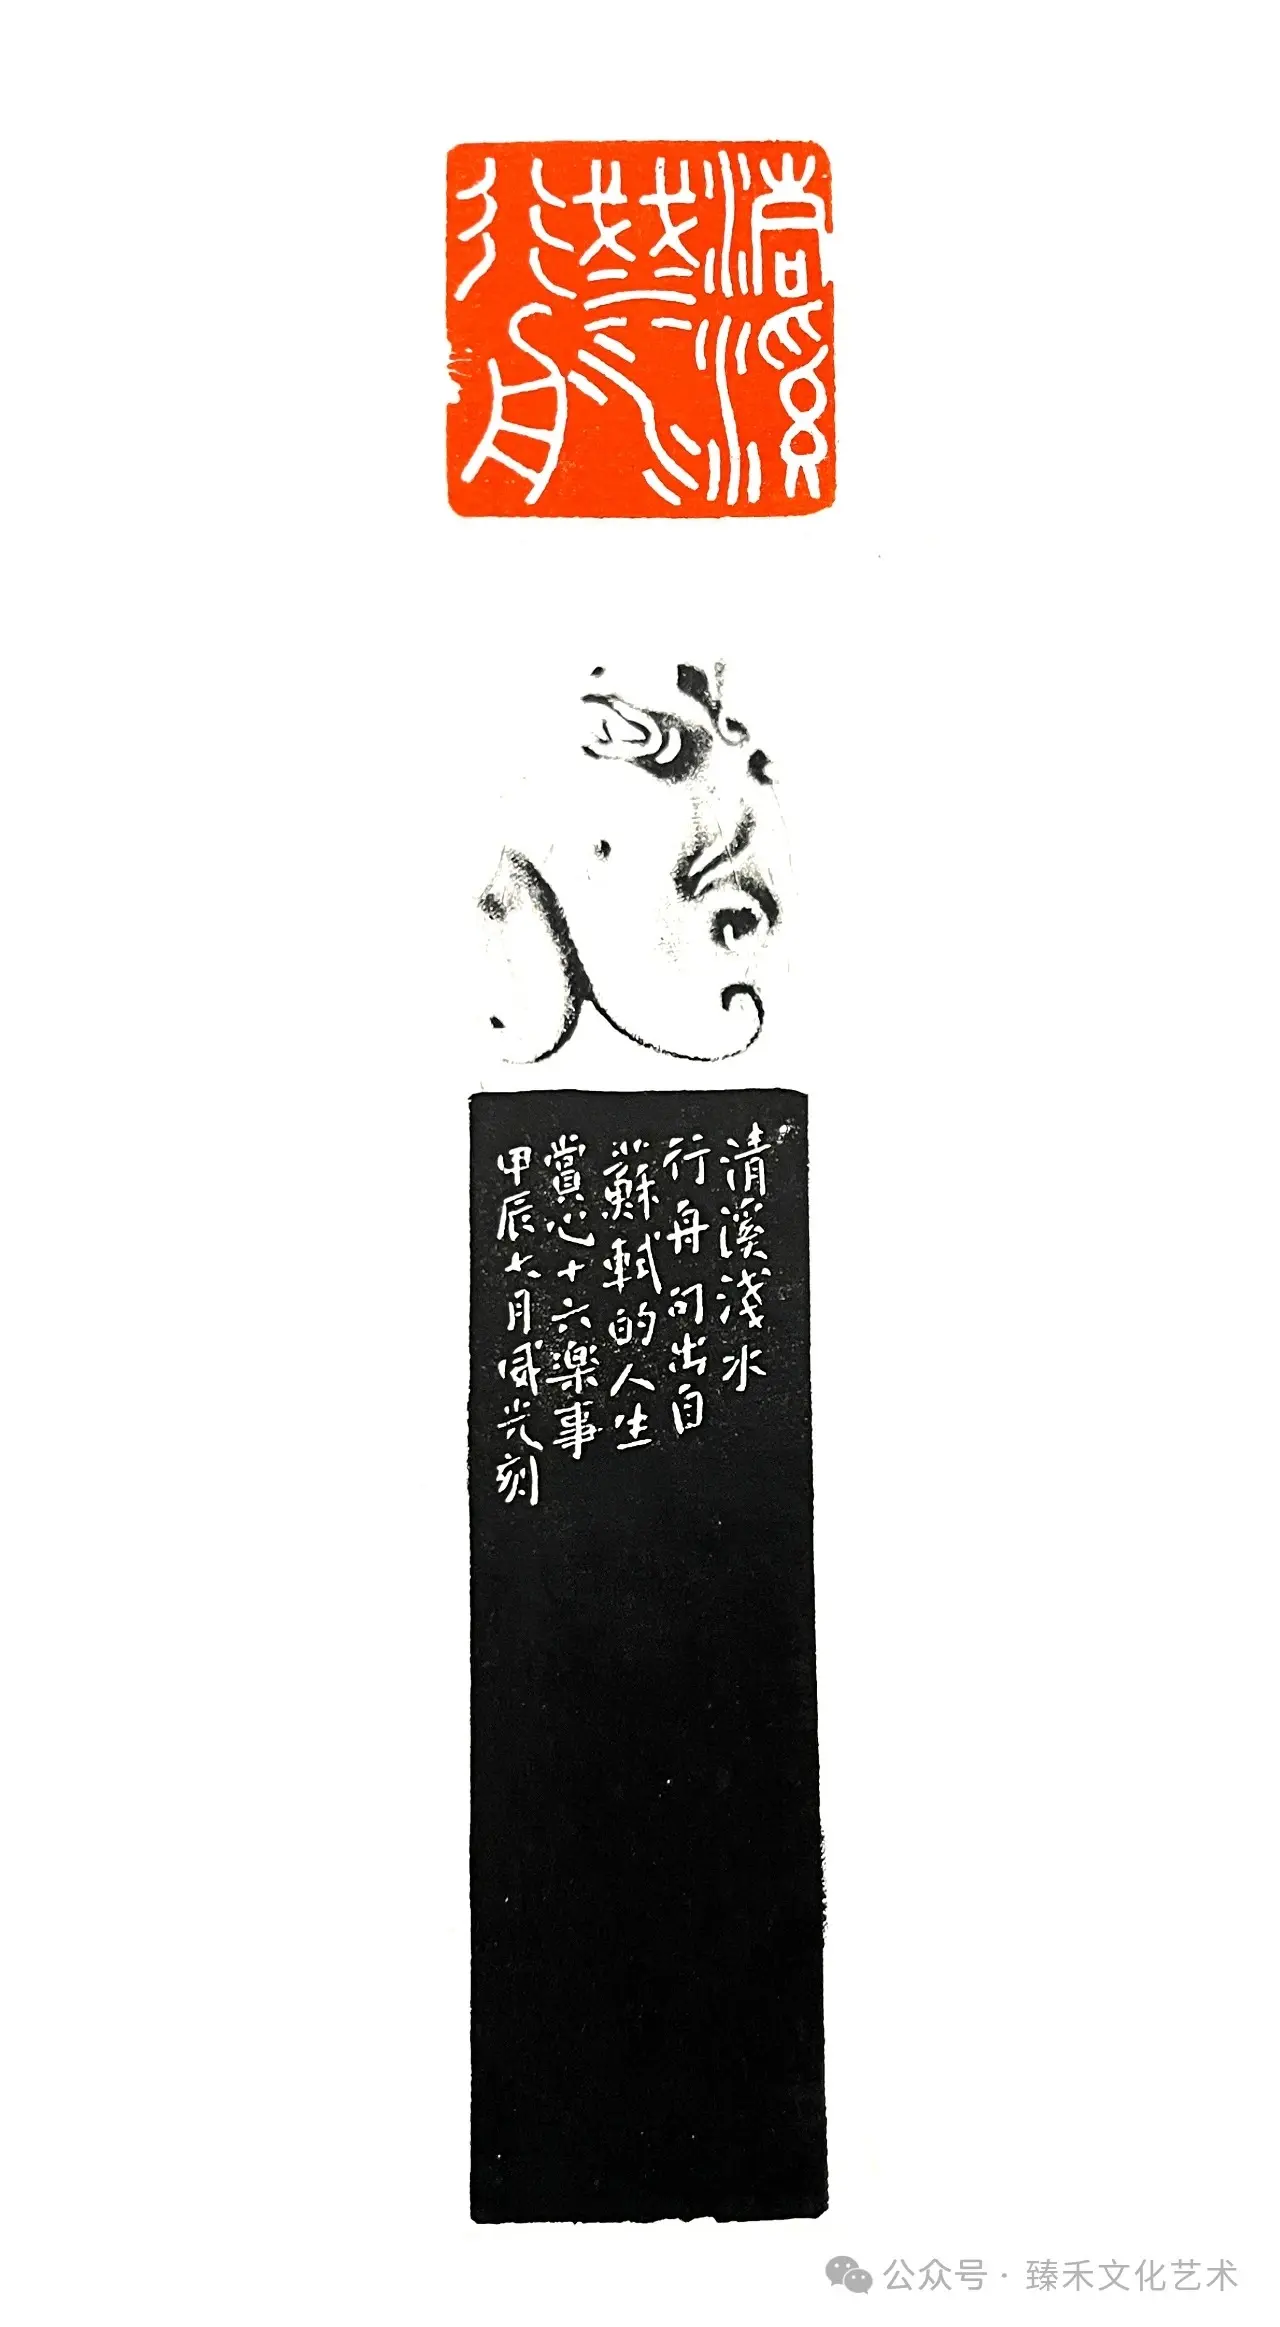 清溪淺水行舟
清溪淺水
行舟 句出自
蘇軾的人生
賞心十六樂事
甲辰七月威光刻
公众号 · 臻禾文化艺术